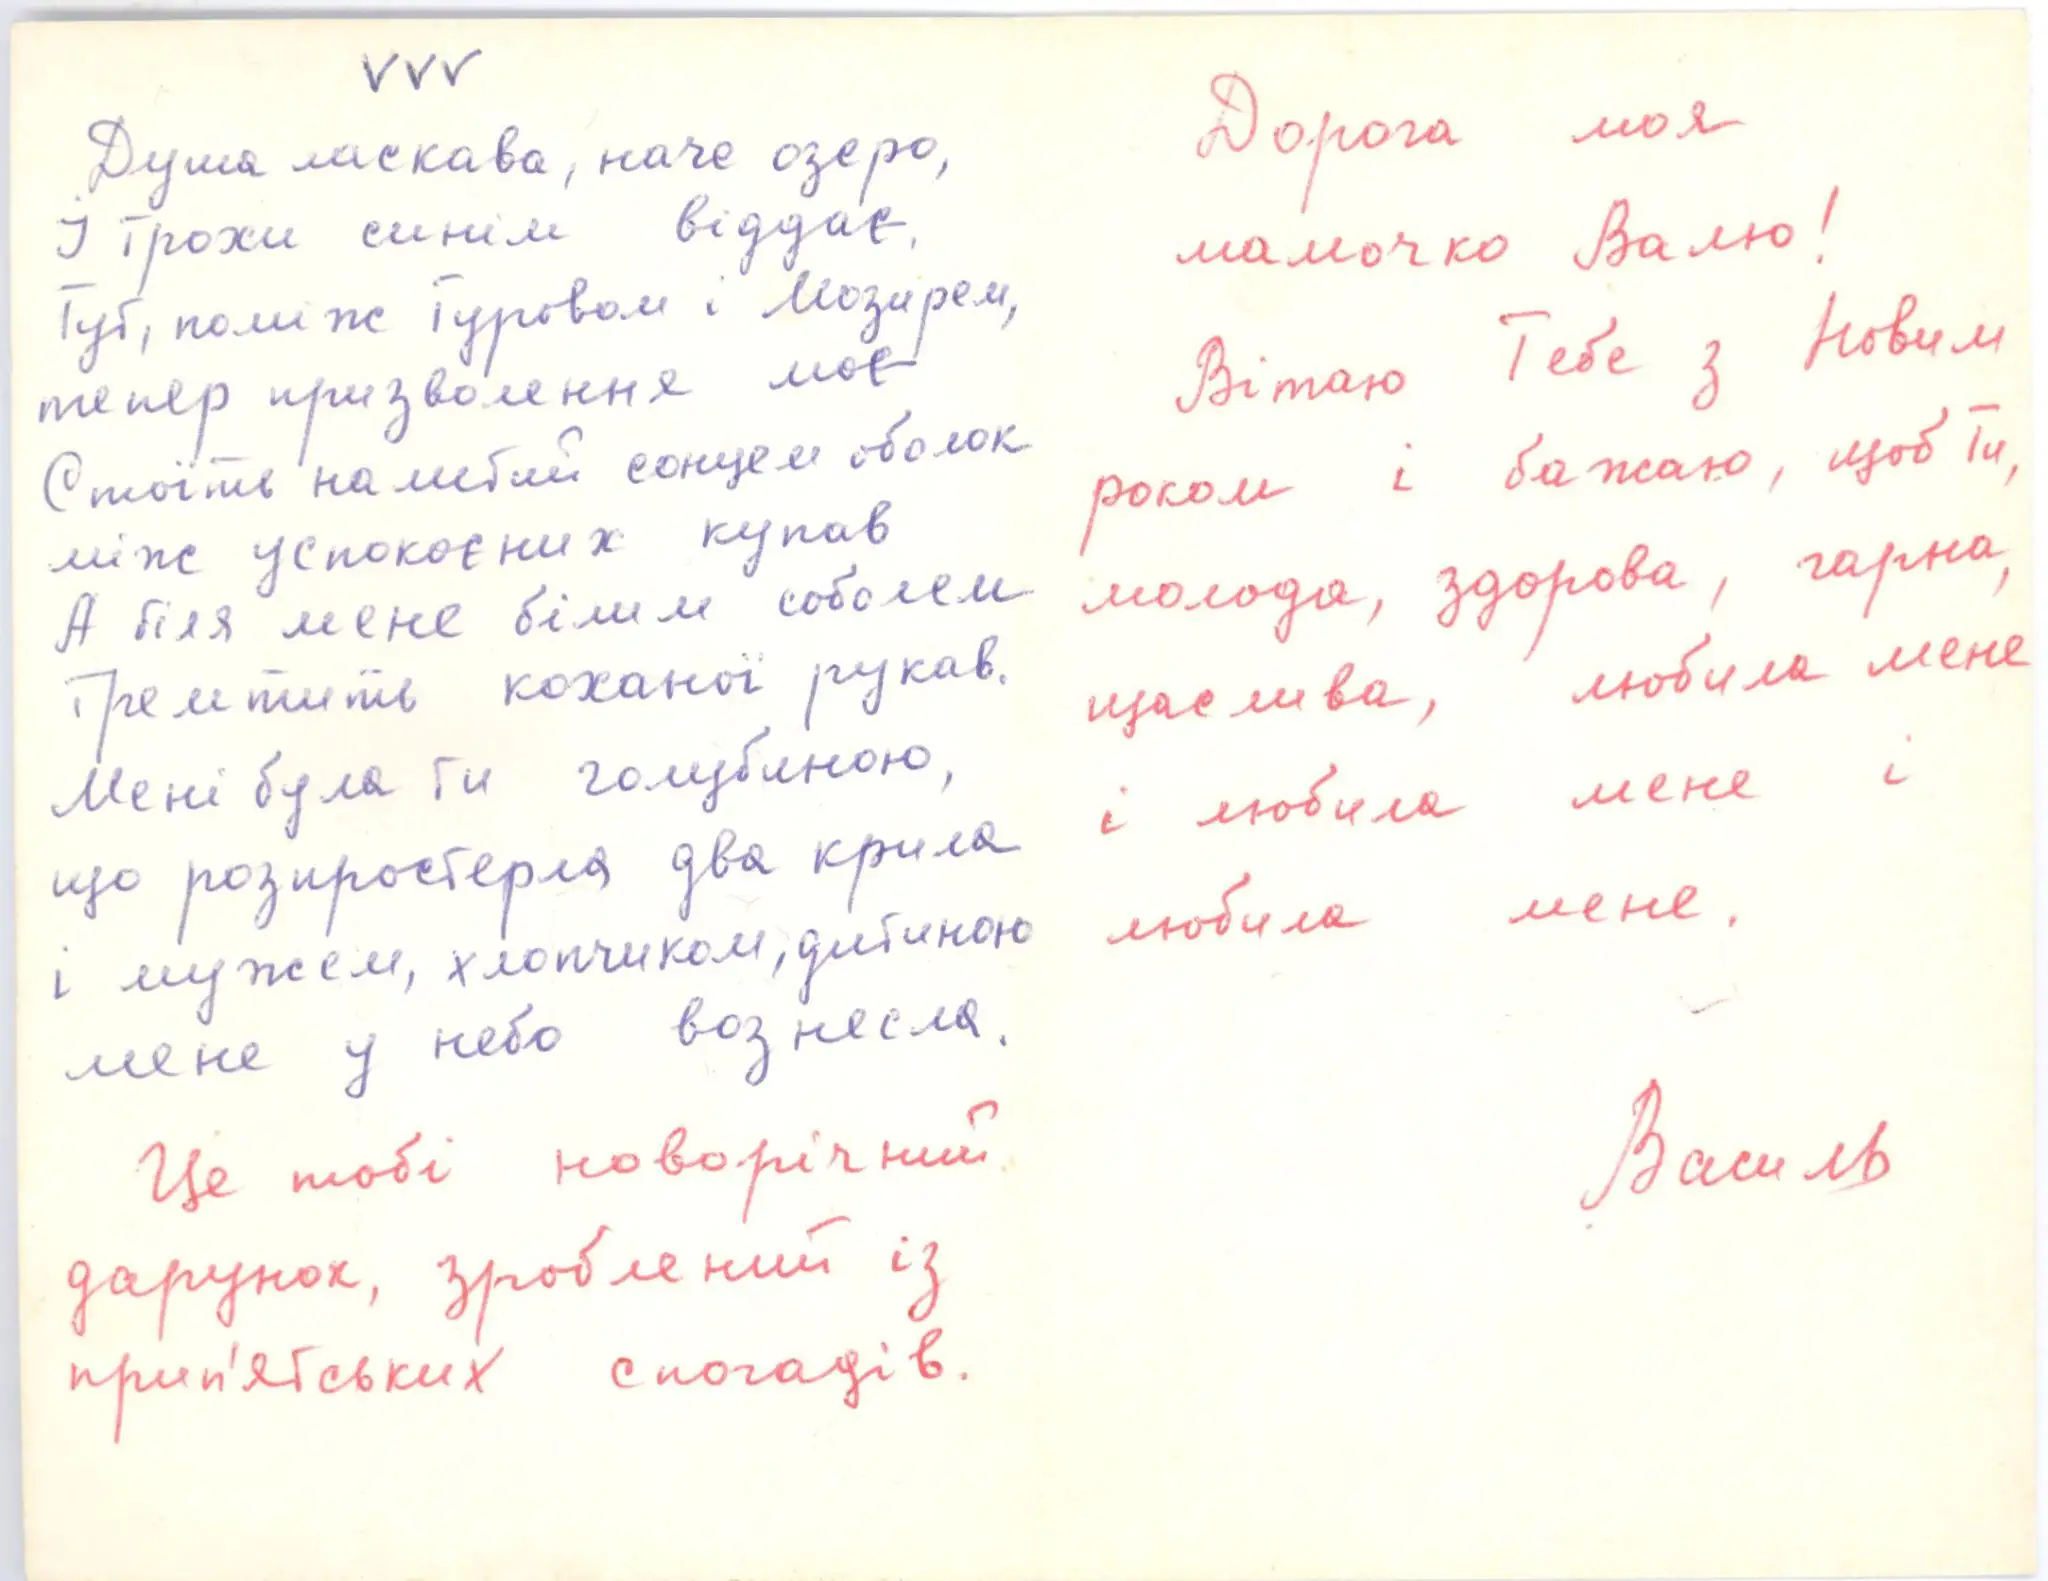 vvv
Душа ласкава, наче озеро,
І трохи синім віддає.
Тут, поміж Туровом і Мозирем,
тепер призволення моє
Стоїть налитий сонцем оболок
між успокоєних купав
А біля мене білим соболем
тремтить коханої рукав.
Мені була ти голубиною,
що розпростерла два крила
і мужем, хлопчиком, дитиною
мене у небо вознесла.
Це тобі новорічний
дарунок, зроблений із
прип'ятських спогадів.
Дорога моя
мамочко Валю!
Вітаю Тебе з Новим
роком і бажаю, щоб Ти,
молода, здорова, гарна,
щаслива, любила мене
і любила мене і
любила мене.
Василь